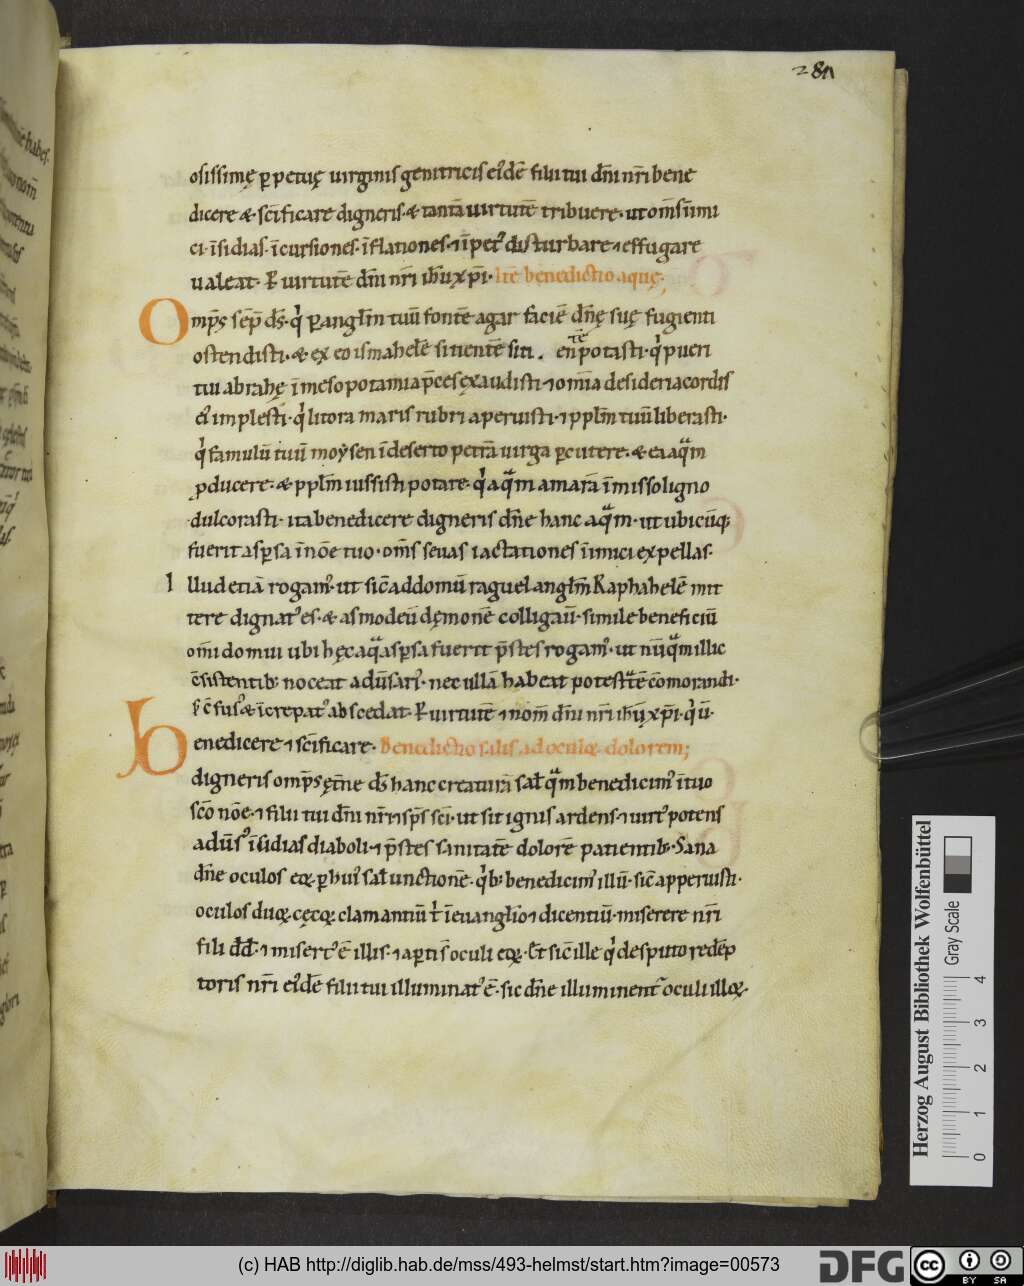 281
osissimę ꝑpetuę uirginis genitricis eiꝰdē filii tui dn̄i nr̄i bene
dicere & sc̄ificare digneris· & tantā uirtutē tribuere· ut om̄s inimi
ci· īsidias· īcursiones· īflationes· ⁊ īpetꝰ disturbare ⁊ effugare
ualeat· P uirtutē dn̄i nr̄i ih̄u xp̄i· Itē benedictio aquę;
Omp̄s sēp̄ ds̄· qͥ ꝑ angl̄m tuū fontē agar faciē dn̄ę suę fugienti
ostendisti· & ex eo ismahelē sitientē siti . en̄ potasti· qͥ pueri
te
tui abrahę ī mesopotamia p̄ces exaudisti ⁊ om̄ia desideria cordis
eiꝰ implesti· qͥ litora maris rubri aperuisti· ⁊ ppl̄m tuū liberasti·
qͥ famulū tuū moẏsen ī deserto petrā uirga ꝑcutere· & ea aqᵃm
ꝓducere· & ppl̄m iussisti potare· qͥ aqᵃm amarā īmisso ligno
dulcorasti· ita benedicere digneris dn̄e hanc aqᵃm· ut ubicūq;
fuerit asꝑsa ī nōe tuo· om̄s seuas iactationes īimici expellas·
Illud etiā rogamꝰ· ut sic̄ ad domū raguel angl̄m Raphahelē mit
tere dignatꝰ es· & asmodeū dęmonē colligauit̄· simile beneficiū
om̄i domui ubi hęc aqᵃ asꝑsa fuerit p̄stes rogamꝰ· ut nūqᵃm illic
c̄sistentib; noceat aduꝰsariꝰ· nec ullā habeat potestatē cōmorandi·
& īcrepatꝰ abscedat· P uirtutē ⁊ nom̄ dn̄i nr̄i ih̄u xp̄i· qͥ ū·
Benedicere ⁊ sc̄ificare· Benedictio salis ad oculoꝝ dolorem;
digneris omp̄s ęt̄ne ds̄ hanc creaturā salꝰ qᵃm benedicimꝰ ī tuo
sc̄o nōe· ⁊ filii tui dn̄i nr̄i ⁊ sp̄s sc̄i· ut sit ignis ardens· ⁊ uirtꝰ potens
adūsꝰ īsidias diaboli· ⁊ p̄stes sanitatē dolorē patientib;· Sana
dn̄e oculos eoꝝ ꝑ huiꝰ salꝰ unctionē· qͥb; benedicimꝰ illū· sic̄ apperuisti·
oculos duoꝝ cęcoꝝ clamantiū t̄ ī euangl̄io ⁊ dicentiū· miserere nr̄i
fili dd̄· ⁊ misertꝰ ē illis· ⁊ aꝑti s̄ oculi eoꝝ· Et sic̄ ille qͥ de sputo redēp
toris nr̄i eiꝰdē filii tui illuminatꝰ ē· sic dn̄e illuminent᷑ oculi illoꝝ·
Herzog August Bibliothek Wolfenbüttel
Gray Scale
0 1 2 3 4
(c) HAB http://diglib.hab.de/mss/493-helmst/start.htm?image=00573
DFG
cc BY SA